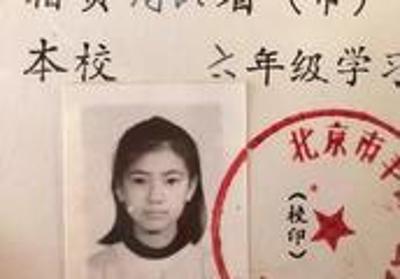 省(市)
本校 六年级学习
北京市丰
(校印)